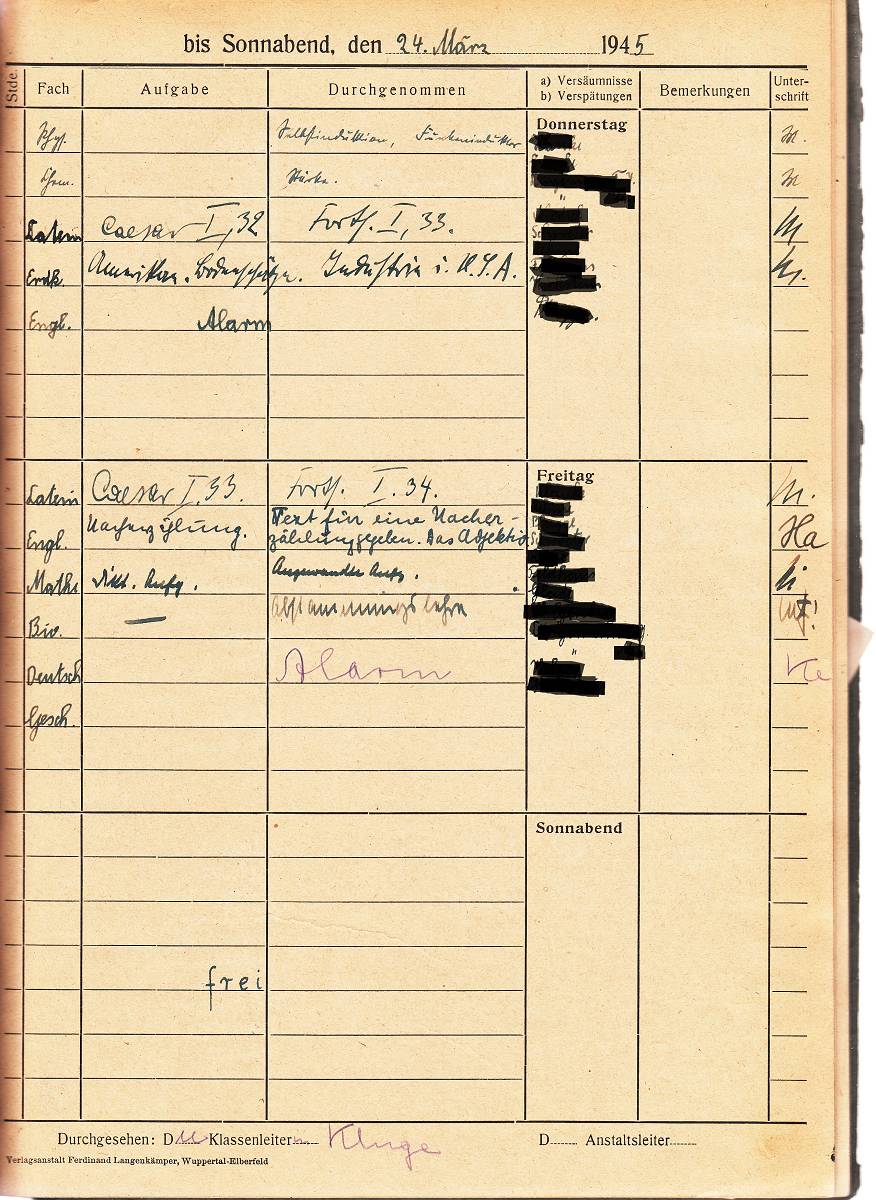 bis Sonnabend, den 24. März 1945
Stde. Fach Aufgabe Durchgenommen a) Versäumnisse b) Verspätungen Bemerkungen Unter-schrift
Donnerstag
Phys. Selbstinduktion, Funkeninduktor M.
Chem. Stärke. M
Latein Caesar I, 32 Fortf. I, 33. M
Erdk. Amerikan. Bodenschätze. Industrie i. U.S.A. M.
Engl. Alarm
Freitag
Latein Caesar I. 33. Fortf. I. 34. M.
Engl. Nacherzählung. Text für eine Nacher-
zählung gegeben. Das Adjektiv Ha
Math. Angewandte Aufg.
Bio. — Abstammungslehre
Deutsch Alarm Ke
Gesch.
Sonnabend
frei
Durchgesehen: D Klassenleiter Kluge D Anstaltsleiter
Verlagsanstalt Ferdinand Langenkämper, Wuppertal-Elberfeld